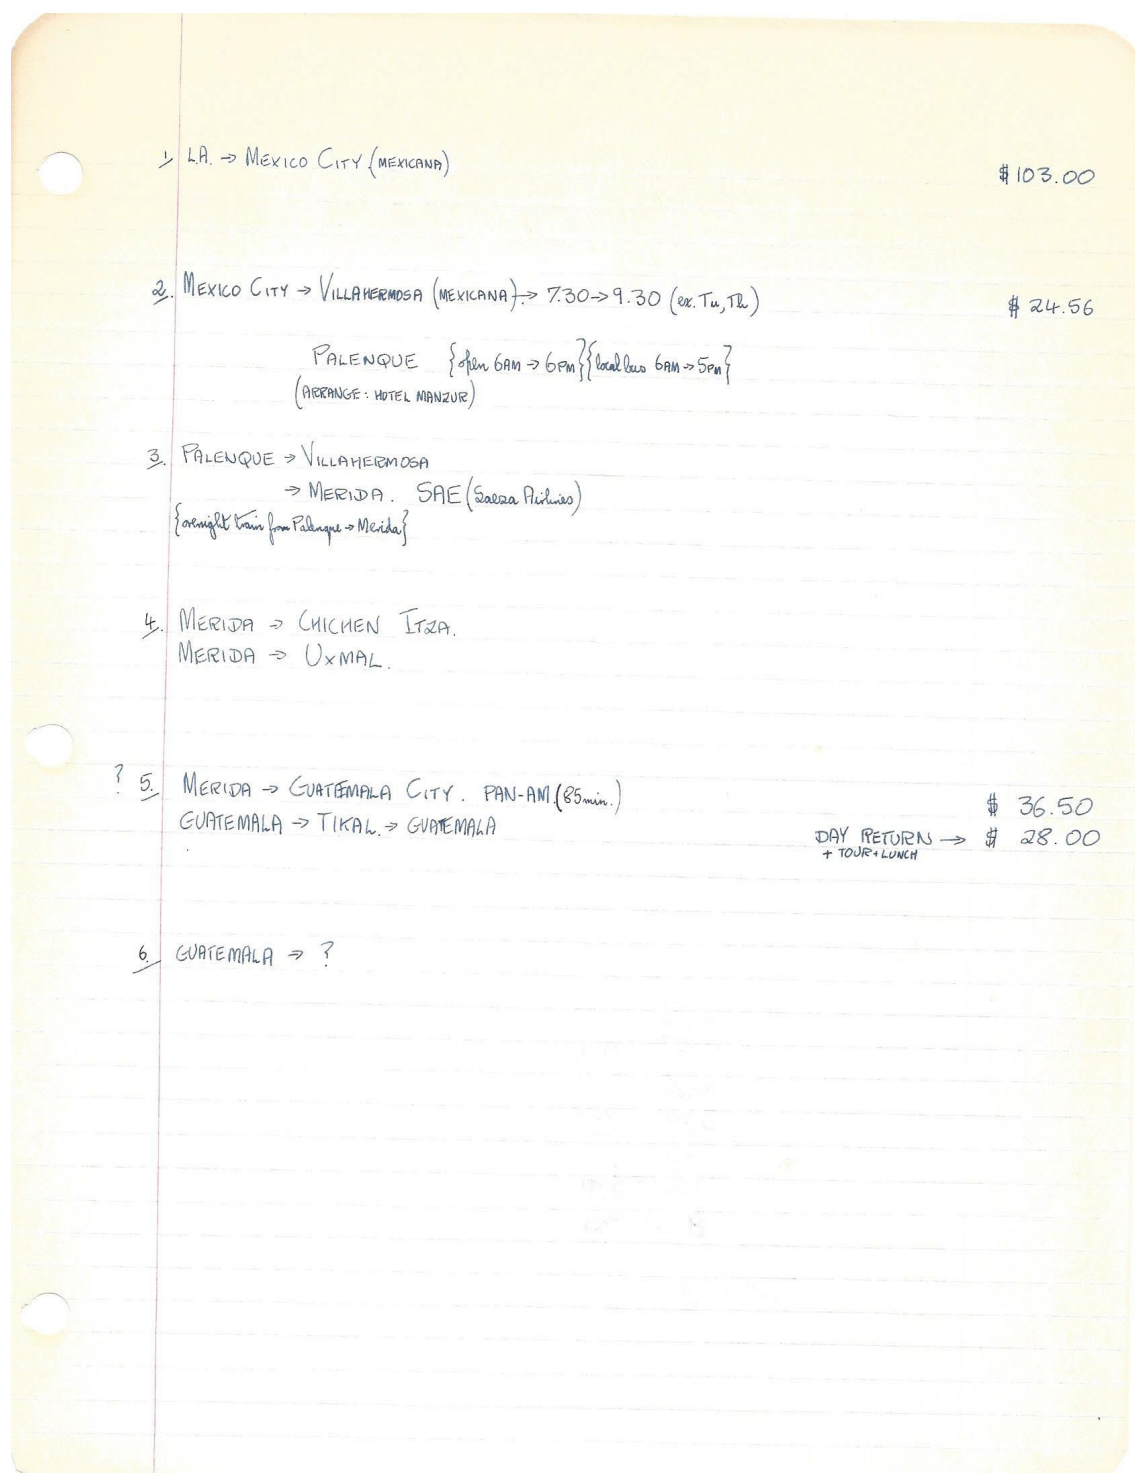 1. L.A. → MEXICO CITY (MEXICANA) $103.00
2. MEXICO CITY → VILLAHERMOSA (MEXICANA) → 7.30 → 9.30 (ex. Tu, Th) $ 24.56
PALENQUE {open 6AM → 6PM} {local bus 6AM → 5PM}
(ARRANGE: HOTEL MANZUR)
3. PALENQUE → VILLAHERMOSA
→ MERIDA. SAE (Saesa Airlines)
{overnight train from Palenque → Merida}
4. MERIDA → CHICHEN ITZA.
MERIDA → UXMAL.
? 5. MERIDA → GUATEMALA CITY. PAN-AM. (85min.) $ 36.50
GUATEMALA → TIKAL. → GUATEMALA DAY RETURN → $ 28.00
+ TOUR + LUNCH
6. GUATEMALA → ?